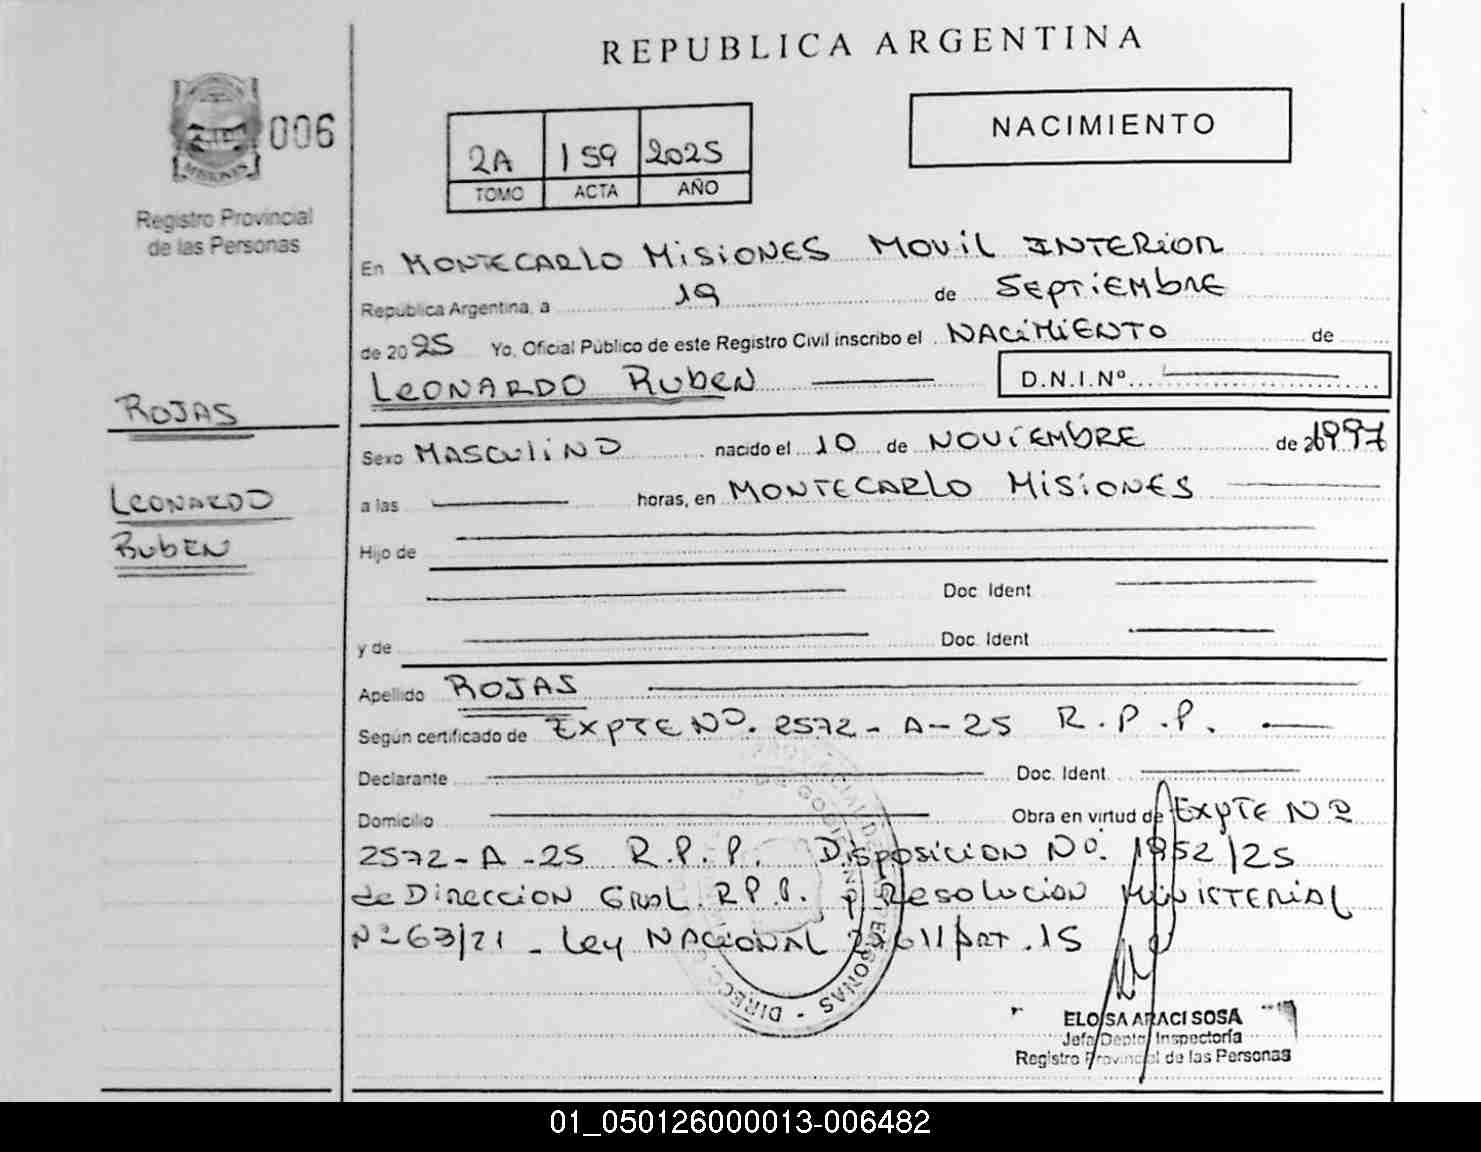 REPUBLICA ARGENTINA
006
MISIONES
Registro Provincial
de las Personas
2A 159 2025
TOMO ACTA AÑO
NACIMIENTO
En MONTECARLO MISIONES MOVIL INTERIOR
Republica Argentina, a 19 de SEPTIEMBRE
de 2025 Yo, Oficial Público de este Registro Civil inscribo el NACIMIENTO de
LEONARDO RUBEN D.N.I.Nº
ROJAS
LEONARDO
RUBEN
Sexo MASCULINO nacido el 10 de NOVIEMBRE de 1997
a las horas, en MONTECARLO MISIONES
Hijo de
Doc. Ident
y de Doc. Ident
Apellido ROJAS
Según certificado de EXPTE Nº. 2572-A-25 R.P.P.
Declarante Doc. Ident.
Domicilio Obra en virtud de EXPTE Nº
2572-A-25 R.P.P. DISPOSICION Nº. 1952/25
de DIRECCION GRAL. R.P.P. y RESOLUCION MINISTERIAL
Nº 63/21 - Ley NACIONAL 26611 ART. 15
DIRECC PROVINCIAL DE PERSONAS
ELOISA ARACI SOSA
Jefa Depto Inspectoría
Registro Provincial de las Personas
01_050126000013-006482